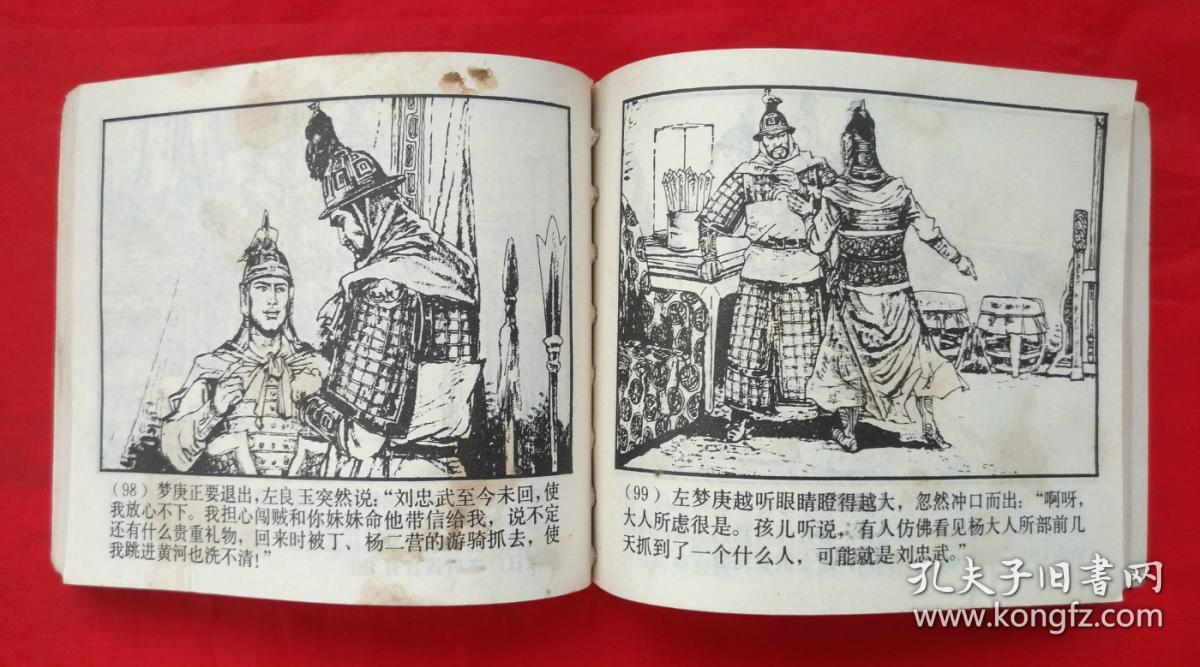 (98) 梦庚正要退出，左良玉突然说：“刘忠武至今未回，使
我放心不下。我担心闯贼和你妹妹命他带信给我，说不定
还有什么贵重礼物，回来时被丁、杨二营的游骑抓去，使
我跳进黄河也洗不清！”
(99) 左梦庚越听眼睛瞪得越大，忽然冲口而出：“啊呀，
大人所虑很是。孩儿听说，有人仿佛看见杨大人所部前几
天抓到了一个什么人，可能就是刘忠武。”
孔夫子旧书网
www.kongfz.com